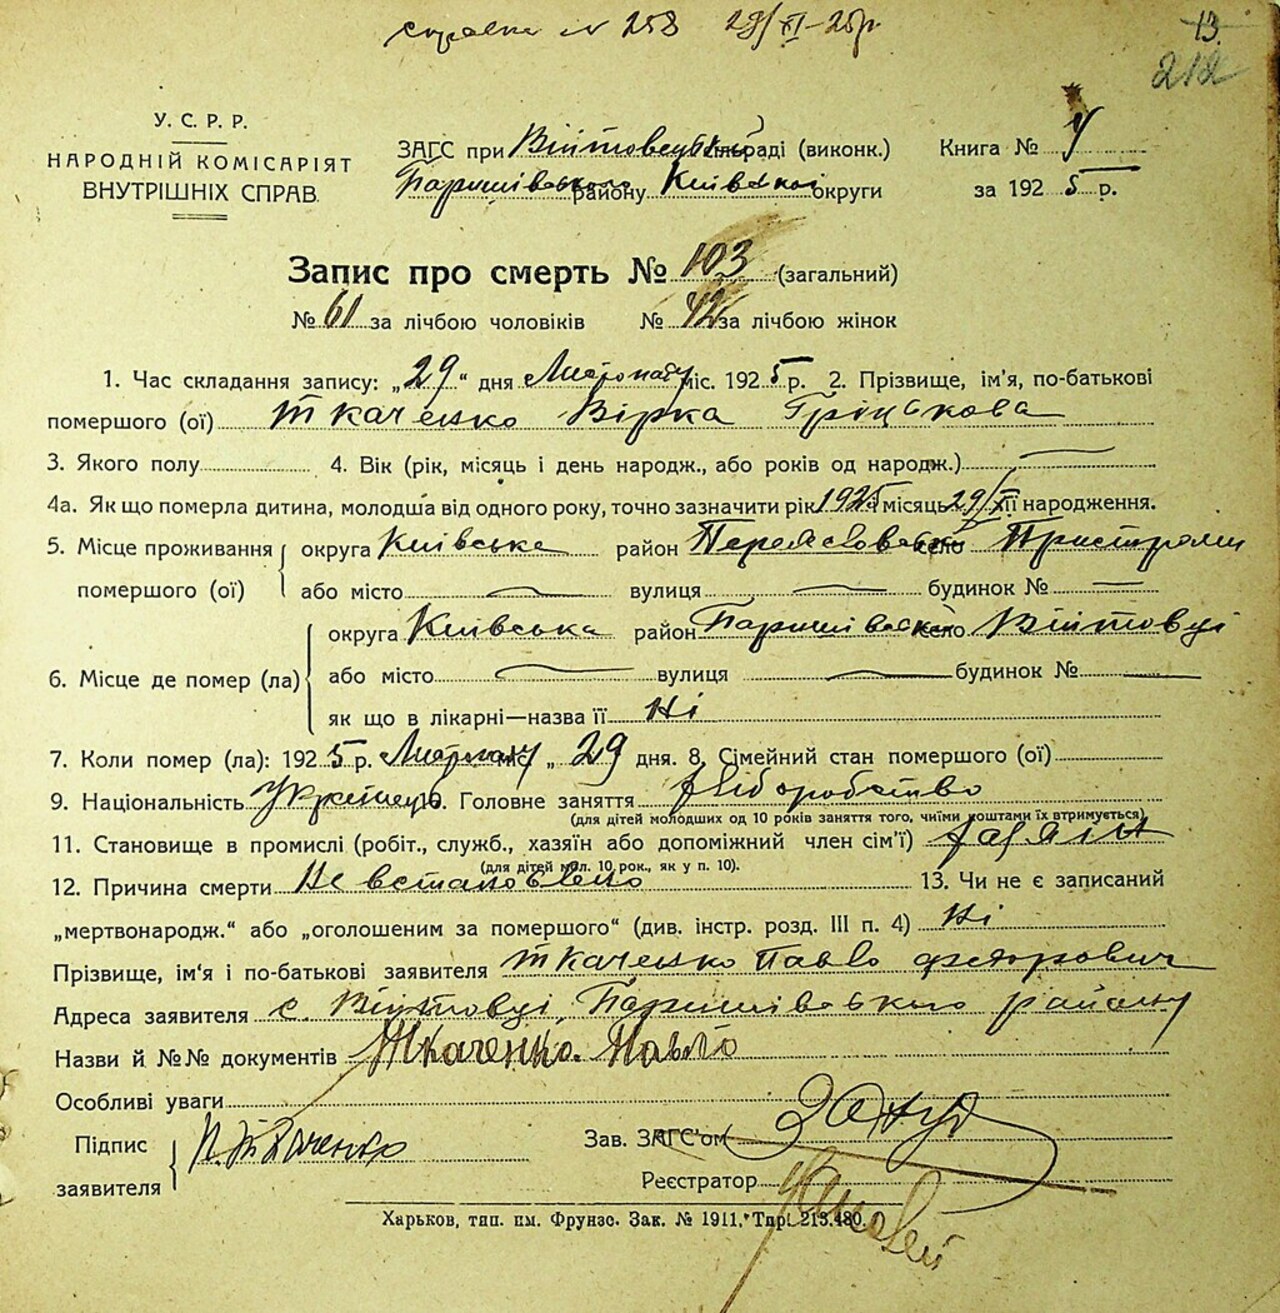 справка № 258 29/XI-25р.
13.
212
У. С. Р. Р.
НАРОДНІЙ КОМІСАРІЯТ
ВНУТРІШНІХ СПРАВ.
ЗАГС при Війтовецькій сільраді (виконк.)
Баришівського району Київської округи
Книга №
за 1925 р.
Запис про смерть № 103 (загальний)
№ 61 за лічбою чоловіків № 42 за лічбою жінок
1. Час складання запису: „29“ дня Листопаду міс. 1925 р. 2. Прізвище, ім'я, по-батькові
помершого (ої) Ткаченко Вірка Гріцькова
3. Якого полу 4. Вік (рік, місяць і день народж., або років од народж.) —
4а. Як що померла дитина, молодша від одного року, точно зазначити рік 1925 місяць 29/XII її народження.
5. Місце проживання помершого (ої) округа Київська район Переяславське село Пристроми
або місто — вулиця — будинок № —
6. Місце де помер (ла) округа Київська район Баришівське село Війтовці
або місто — вулиця — будинок № —
як що в лікарні—назва її Ні
7. Коли помер (ла): 1925 р. Листопаду міс. „29 дня. 8. Сімейний стан помершого (ої)
9. Національність 10. Головне заняття хліборобство
(для дітей молодших од 10 років заняття того, чиїми коштами їх втримується)
11. Становище в промислі (робіт., служб., хазяїн або допоміжний член сім'ї) хазяін
(для дітей мол. 10 рок., як у п. 10).
12. Причина смерти Не встановлено 13. Чи не є записаний
„мертвонародж.“ або „оголошеним за помершого“ (див. інстр. розд. III п. 4) Ні
Прізвище, ім'я і по-батькові заявителя Ткаченко Павло Федорович
Адреса заявителя с. Війтовці, Баришівського району
Назви й №№ документів Ткаченко Павло
Особливі уваги
Підпис заявителя П. Ткаченко
Зав. ЗАГС'ом
Реєстратор
Харьков, тип. им. Фрунзе. Зак. № 1911. Тир. 213.480.